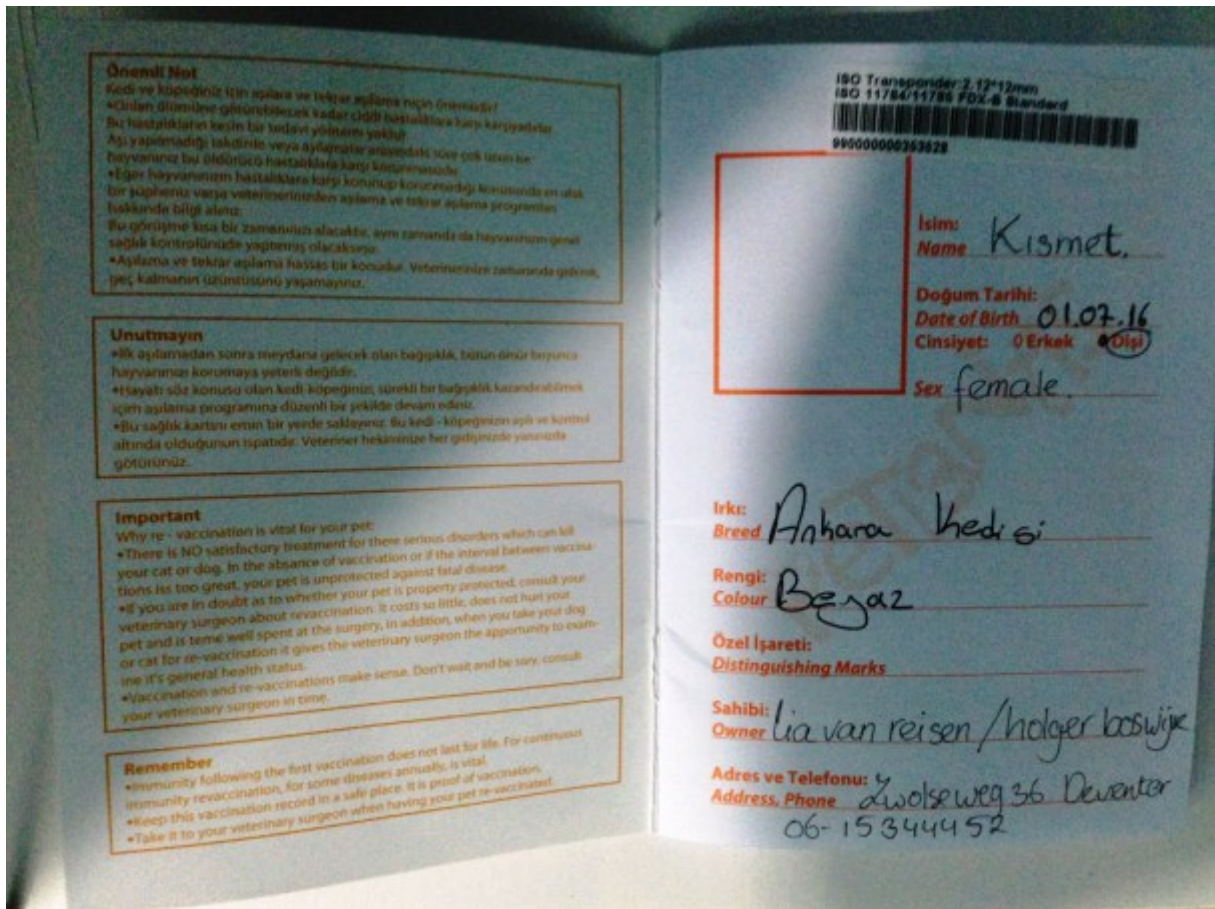 Önemli Not
Kedi ve köpeğiniz için aşılara ve tekrar aşılama niçin önemlidir?
•Onları ölümüne götürebilecek kadar ciddi hastalıklara karşı karşıyadırlar.
Bu hastalıkların kesin bir tedavi yöntemi yoktur.
Aşı yapılmadığı takdirde veya aşılamalar arasındaki süre çok uzun ise
hayvanınız bu öldürücü hastalıklara karşı korunmasızdır.
•Eğer hayvanınızın hastalıklara karşı korunup korunmadığı konusunda en ufak
bir şüpheniz varsa veterinerinizden aşılama ve tekrar aşılama programları
hakkında bilgi alınız.
Bu görüşme kısa bir zamanınızı alacaktır, aynı zamanda da hayvanınızın genel
sağlık kontrolünüde yaptırmış olacaksınız.
•Aşılama ve tekrar aşılama hassas bir konudur. Veterinerinize zamanında giderek,
geç kalmanın üzüntüsünü yaşamayınız.
Unutmayın
•İlk aşılamadan sonra meydana gelecek olan bağışıklık, bütün ömür boyunca
hayvanınızı korumaya yeterli değildir.
•Hayatı söz konusu olan kedi köpeğinizi, sürekli bir bağışıklık kazandırabilmek
için aşılama programına düzenli bir şekilde devam ediniz.
•Bu sağlık kartını emin bir yerde saklayınız. Bu kedi - köpeğinizin aşılı ve kontrol
altında olduğunun ispatıdır. Veteriner hekiminize her gidişinizde yanınızda
götürünüz.
Important
Why re - vaccination is vital for your pet:
•There is NO satisfactory treatment for there serious disorders which can kill
your cat or dog. In the absence of vaccination or if the interval between vaccina-
tions iss too great, your pet is unprotected against fatal disease.
•If you are in doubt as to whether your pet is property protected, consult your
veterinary surgeon about revaccination. It costs so little, does not hurt your
pet and is teme well spent at the surgery, in addition, when you take your dog
or cat for re-vaccination it gives the veterinary surgeon the apportunity to exam-
ine it's general health status.
•Vaccination and re-vaccinations make sense. Don't wait and be sory, consult
your veterinary surgeon in time.
Remember
•Immunity following the first vaccination does not last for life. For continuous
immunity revaccination, for some diseases annually, is vital.
•Keep this vaccination record in a safe place. It is proof of vaccination.
•Take it to your veterinary surgeon when having your pet re-vaccinated.
ISO Transponder:2.12*12mm
ISO 11784/11785 FDX-B Standard
990000000353628
İsim:
Name Kısmet.
Doğum Tarihi:
Date of Birth 01.07.16
Cinsiyet: 0 Erkek Dişi
Sex female.
Irkı:
Breed Ankara kedisi
Rengi:
Colour Beyaz
Özel İşareti:
Distinguishing Marks
Sahibi:
Owner lia van reisen / holger boswijk
Adres ve Telefonu:
Address, Phone Zwolseweg 36 Deventer
06-15344452